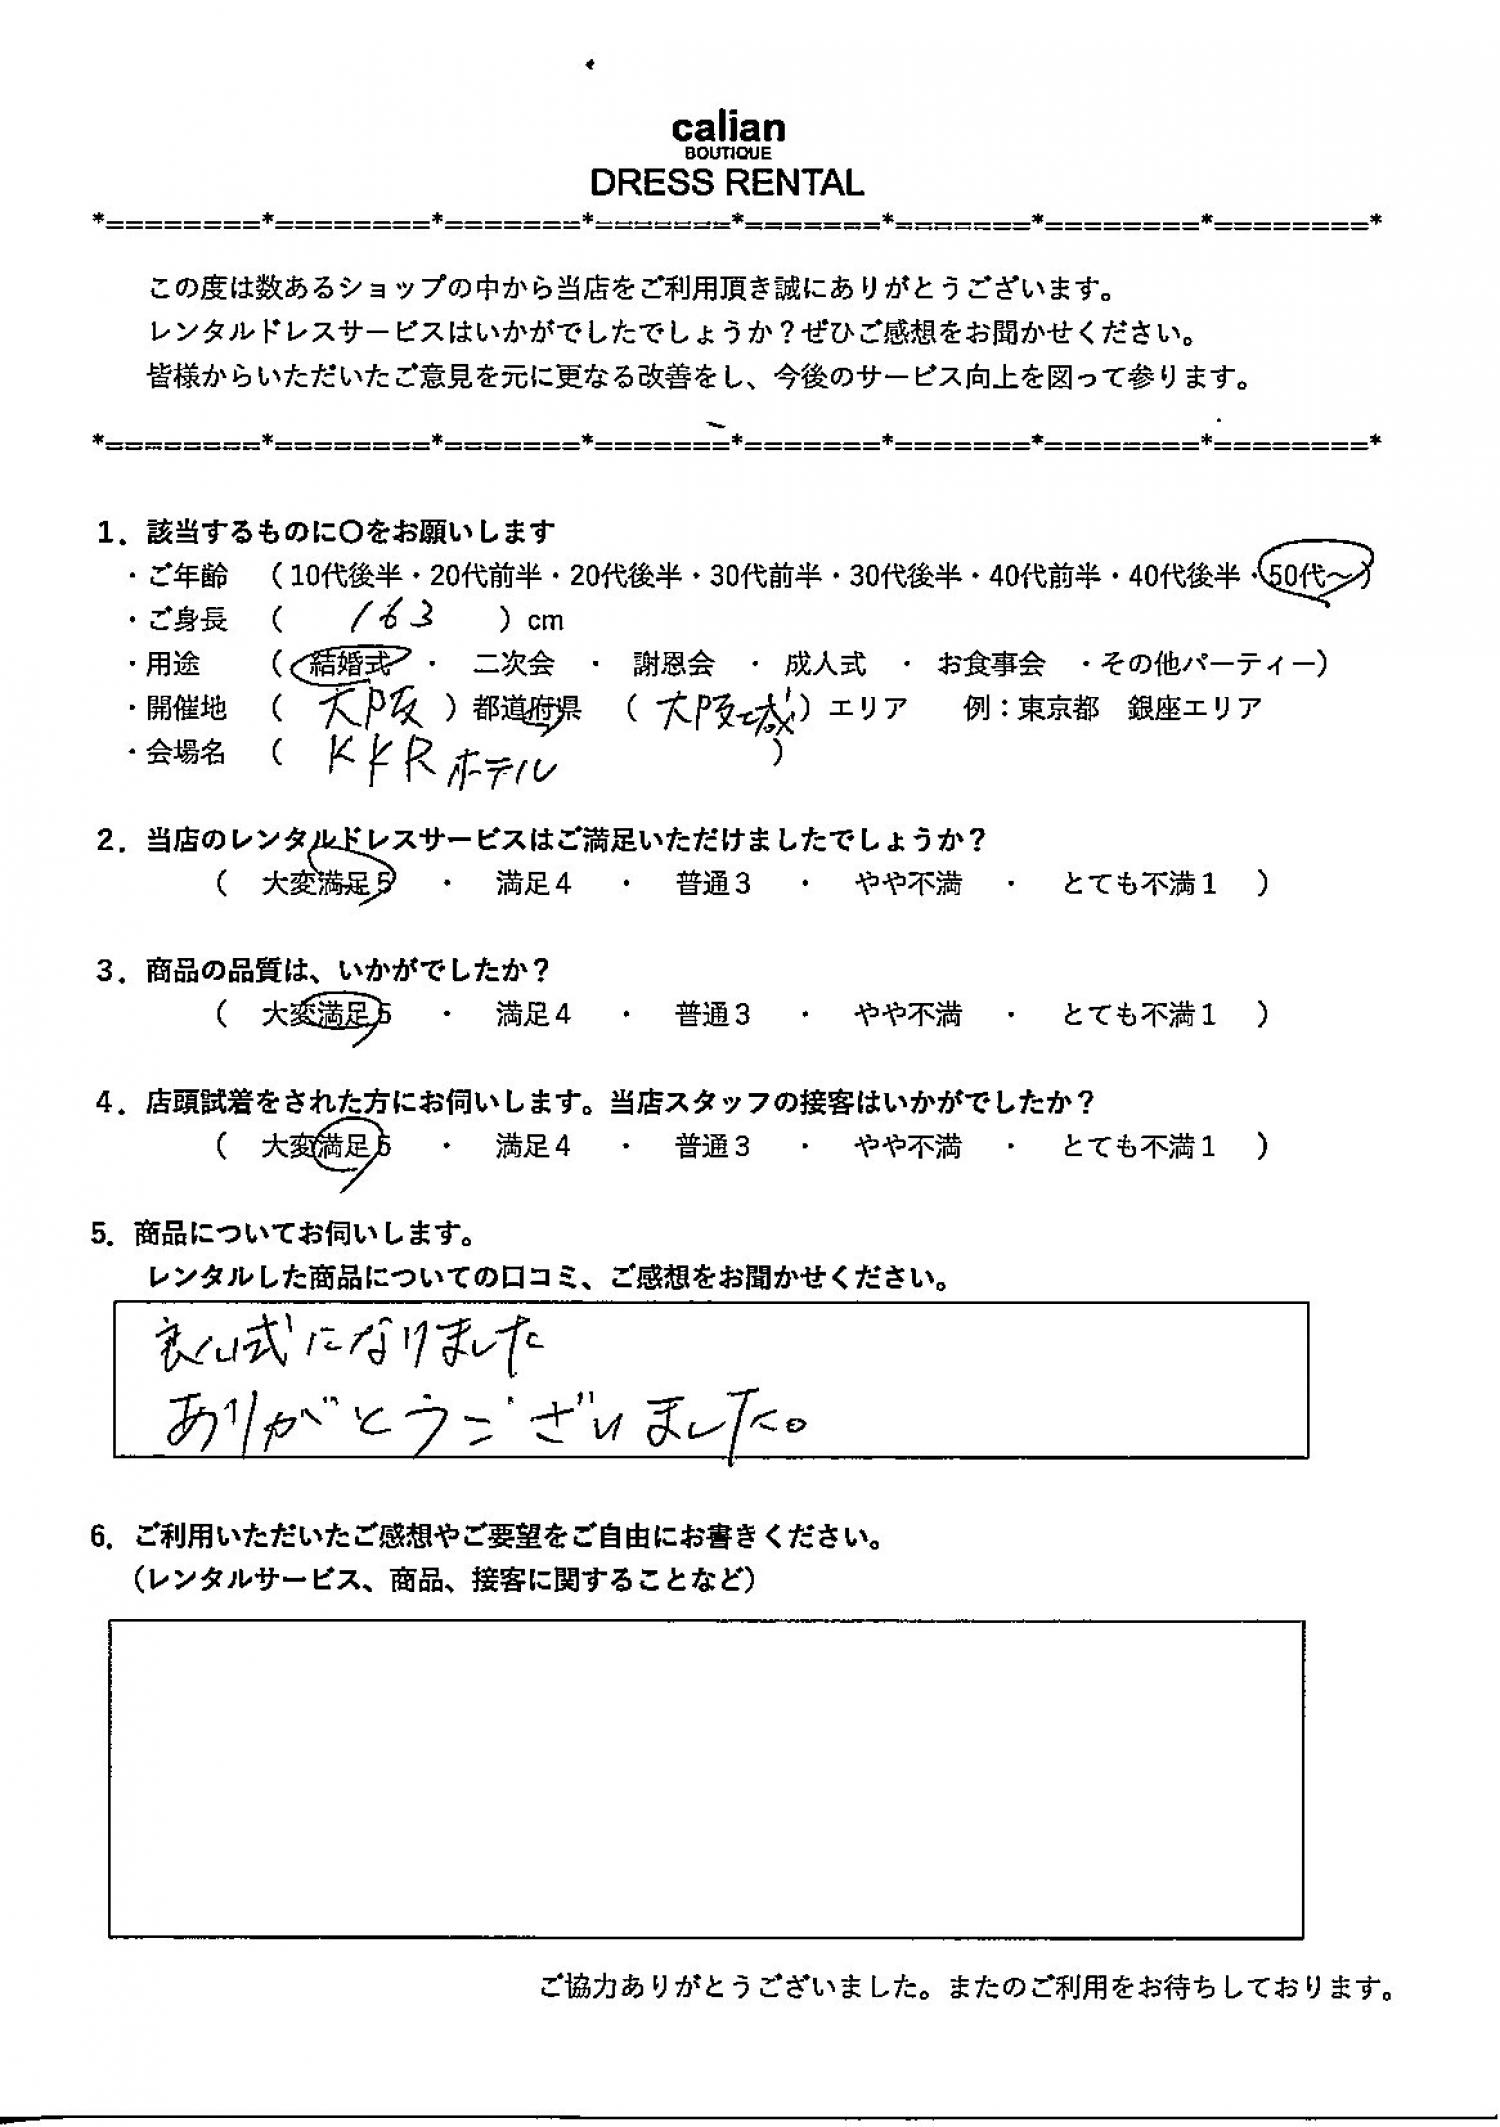 calian
BOUTIQUE
DRESS RENTAL
*========*========*=======*=======*=======*=======*========*========*
この度は数あるショップの中から当店をご利用頂き誠にありがとうございます。
レンタルドレスサービスはいかがでしたでしょうか？ぜひご感想をお聞かせください。
皆様からいただいたご意見を元に更なる改善をし、今後のサービス向上を図って参ります。
*========*========*=======*=======*=======*=======*========*========*
1．該当するものに〇をお願いします
・ご年齢 （10代後半・20代前半・20代後半・30代前半・30代後半・40代前半・40代後半・50代～）
・ご身長 （ 163 ）cm
・用途 （ 結婚式 ・ 二次会 ・ 謝恩会 ・ 成人式 ・ お食事会 ・その他パーティー）
・開催地 （ 大阪 ）都道府県 （ 大阪城 ）エリア 例：東京都 銀座エリア
・会場名 （ KKRホテル ）
2．当店のレンタルドレスサービスはご満足いただけましたでしょうか？
（ 大変満足５ ・ 満足４ ・ 普通３ ・ やや不満 ・ とても不満１ ）
3．商品の品質は、いかがでしたか？
（ 大変満足５ ・ 満足４ ・ 普通３ ・ やや不満 ・ とても不満１ ）
4．店頭試着をされた方にお伺いします。当店スタッフの接客はいかがでしたか？
（ 大変満足５ ・ 満足４ ・ 普通３ ・ やや不満 ・ とても不満１ ）
5．商品についてお伺いします。
レンタルした商品についての口コミ、ご感想をお聞かせください。
良い式になりました
ありがとうございました。
6．ご利用いただいたご感想やご要望をご自由にお書きください。
（レンタルサービス、商品、接客に関することなど）
ご協力ありがとうございました。またのご利用をお待ちしております。